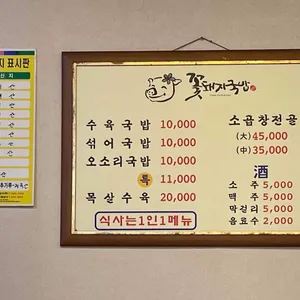 지 표시판
산 지
꽃돼지국밥
수육국밥 10,000
섞어국밥 10,000
오소리국밥 10,000
특 11,000
목살수육 20,000
식사는1인1메뉴
소곱창전골
(大) 45,000
(中) 35,000
酒
소 주 5,000
맥 주 5,000
막걸리 5,000
음료수 2,000